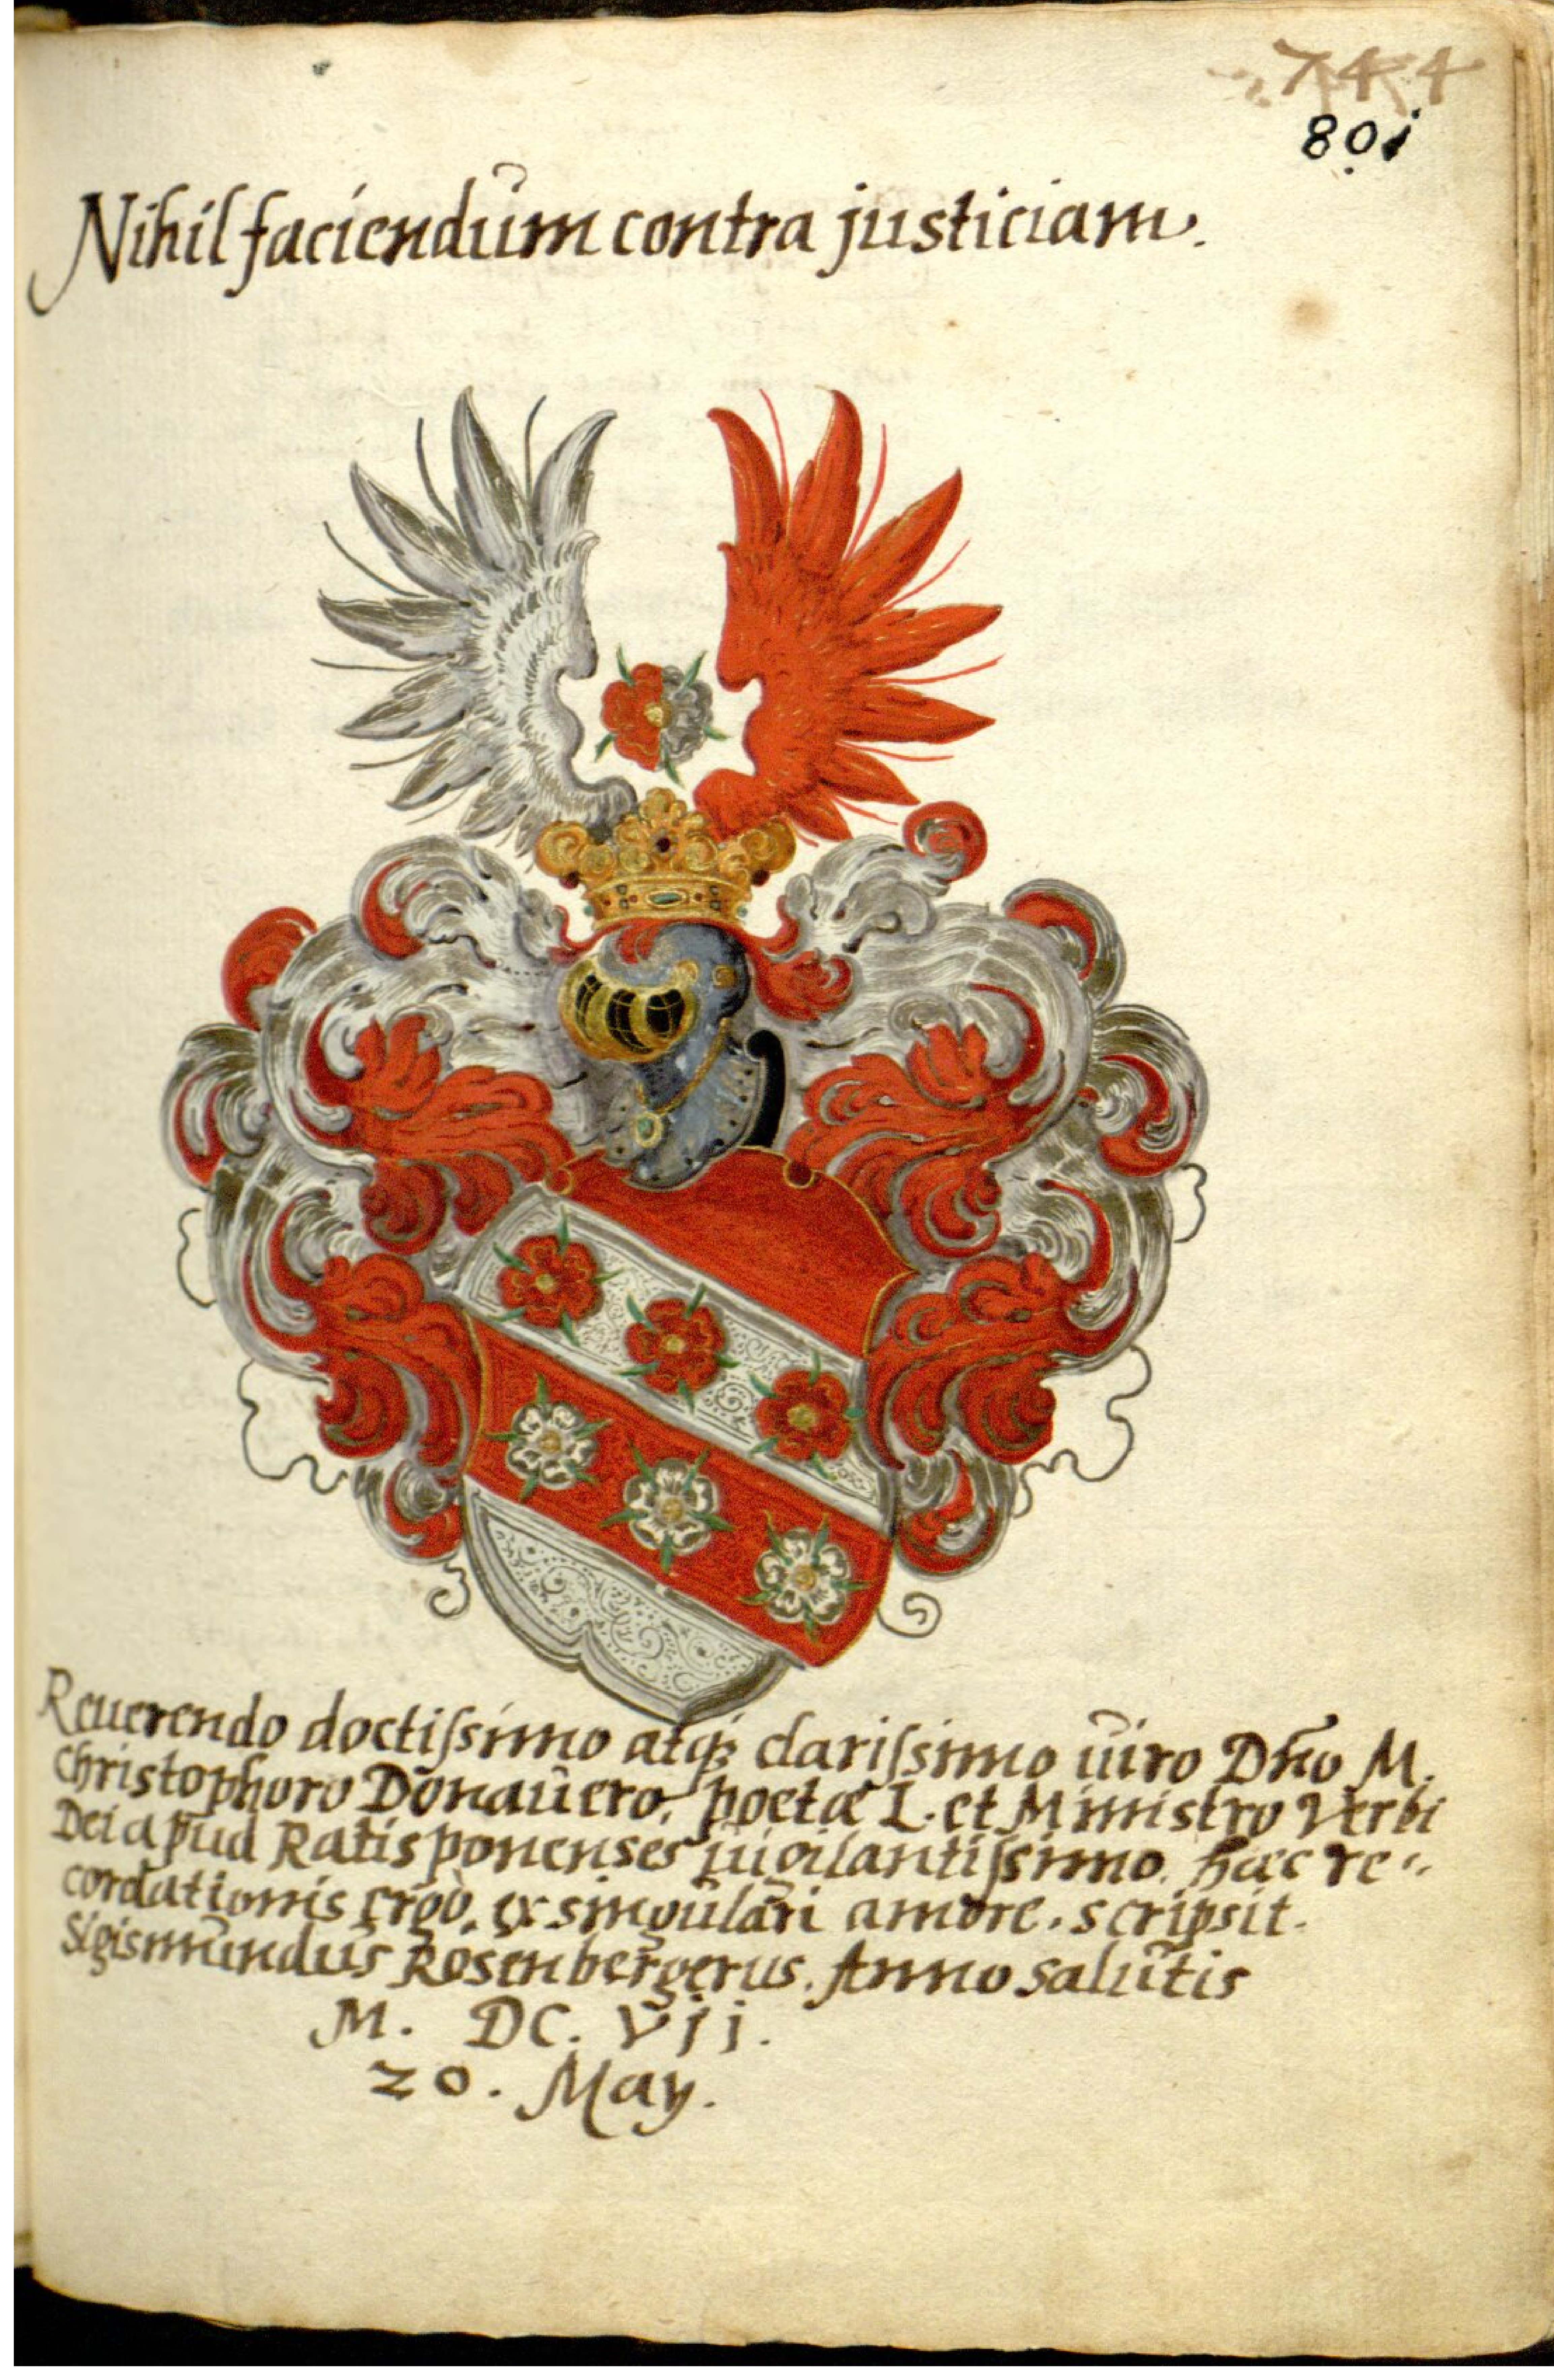 744
801
Nihil faciendum contra justiciam.
Reuerendo doctiſsimo atq; clariſsimo uiro Dño M.
Christophoro Donauero, poetæ L. et Ministro Verbi
Dei apud Ratisponenses uigilantiſsimo. hæc re-
cordationis ergò, ex singulari amore. scripsit.
Sigismundus Rosenbergerus. Anno salutis
M. DC. Vij.
20. May.